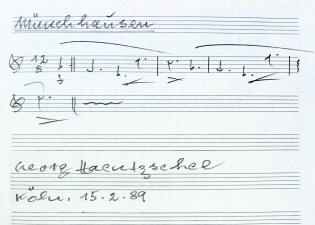 Münchhausen
12
8
Georg Haentzschel
Köln, 15.2.89